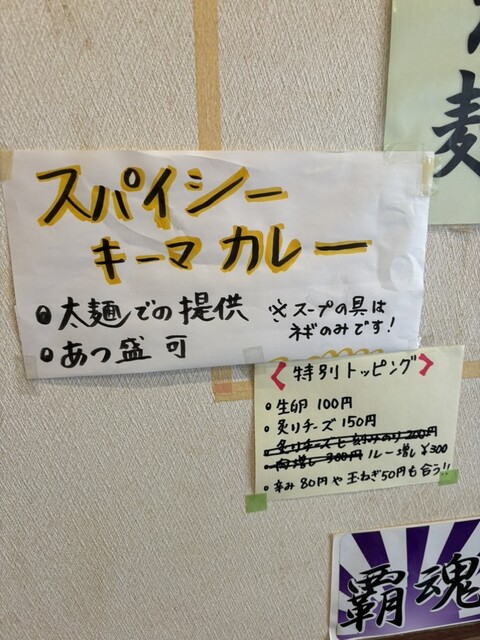 麦
スパイシー
キーマカレー
●太麺での提供
●あつ盛 可
※スープの具は
ネギのみです!
<特別トッピング>
・生卵 100円
・炙りチーズ 150円
・炙りチーズと刻みのり 200円
・肉増し 300円 ルー増し¥300
・辛み80円や玉ねぎ50円も合う!!
覇魂